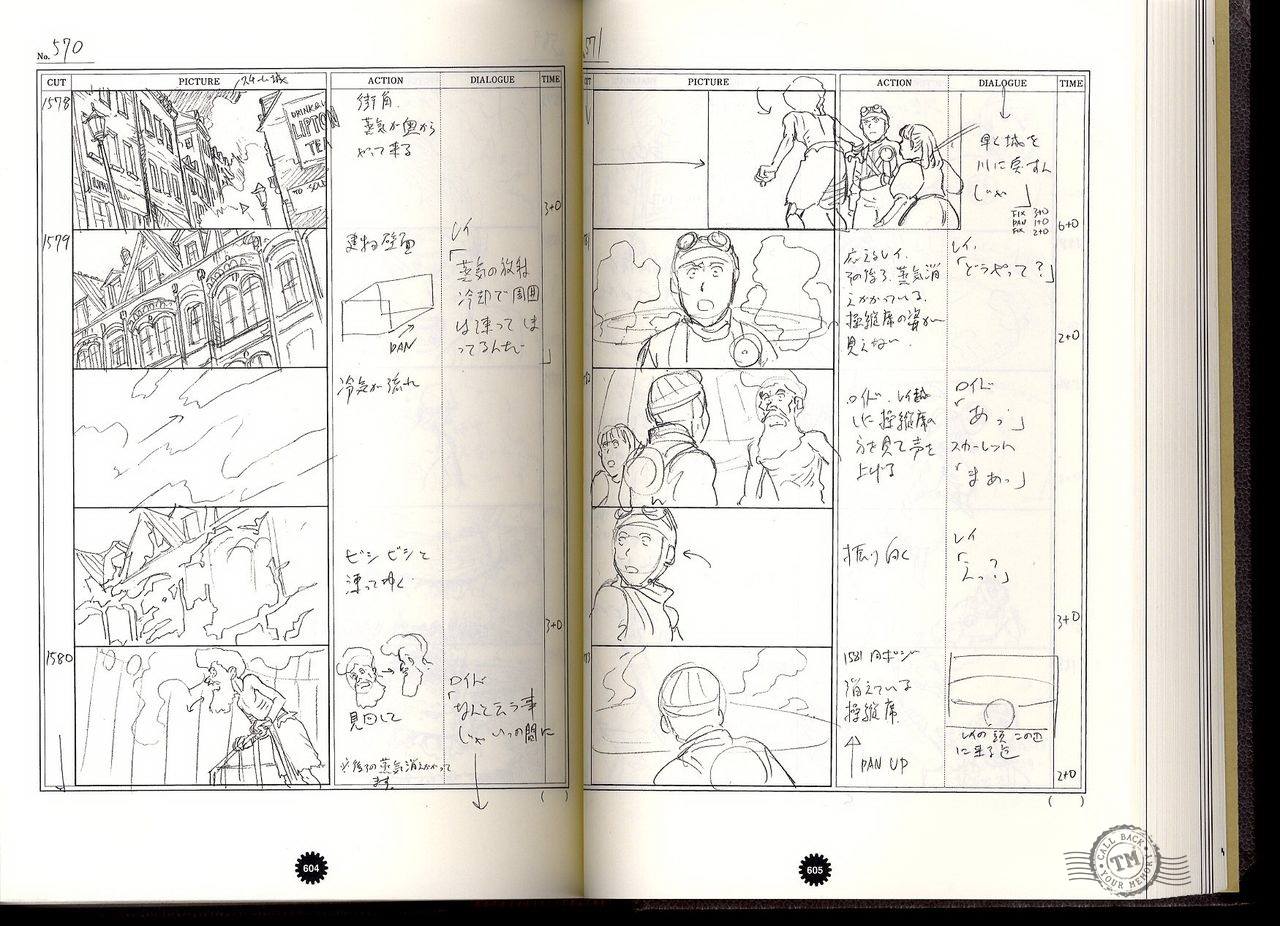 No. 570
CUT
PICTURE
ACTION
DIALOGUE
TIME
1578
DRINK
LIPTON
TEA
TO SOLE
街角.
蒸気が奥から
やって来る
3+0
1579
建物壁面
PAN
レイ
「蒸気の放射
冷却で周囲
は凍ってしま
ってるんだ」
冷気が流れ
ビシビシと
凍って行く
3+0
1580
見回して
後ろの蒸気消えかかって
ます.
ロイド
「なんと云う事
じゃいつの間に
( )
604
571
CUT
PICTURE
ACTION
DIALOGUE
TIME
早く城を
川に戻すん
じゃ」
FIX 3+0
PAN 1+0
FIX 2+0
6+0
応えるレイ.
その後ろ.蒸気消
えかかっている.
操縦席の姿が
見えない.
レイ.
「どうやって?」
2+0
ロイド.レイ越
しに操縦席の
方を見て声を
上げる
ロイド
「あっ」
スカーレット
「まあっ」
振り向く
レイ
「えっ?」
3+0
1581 同ポジ
消えている
操縦席.
PAN UP
レイの頭 この辺
に来る迄
2+0
( )
605
CALL BACK
TM
YOUR MEMORY